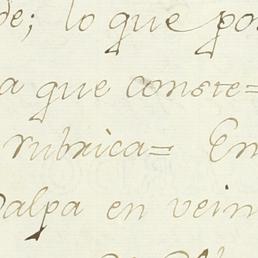 de; lo que po
a que conste=
rubrica= En
alpa en vein